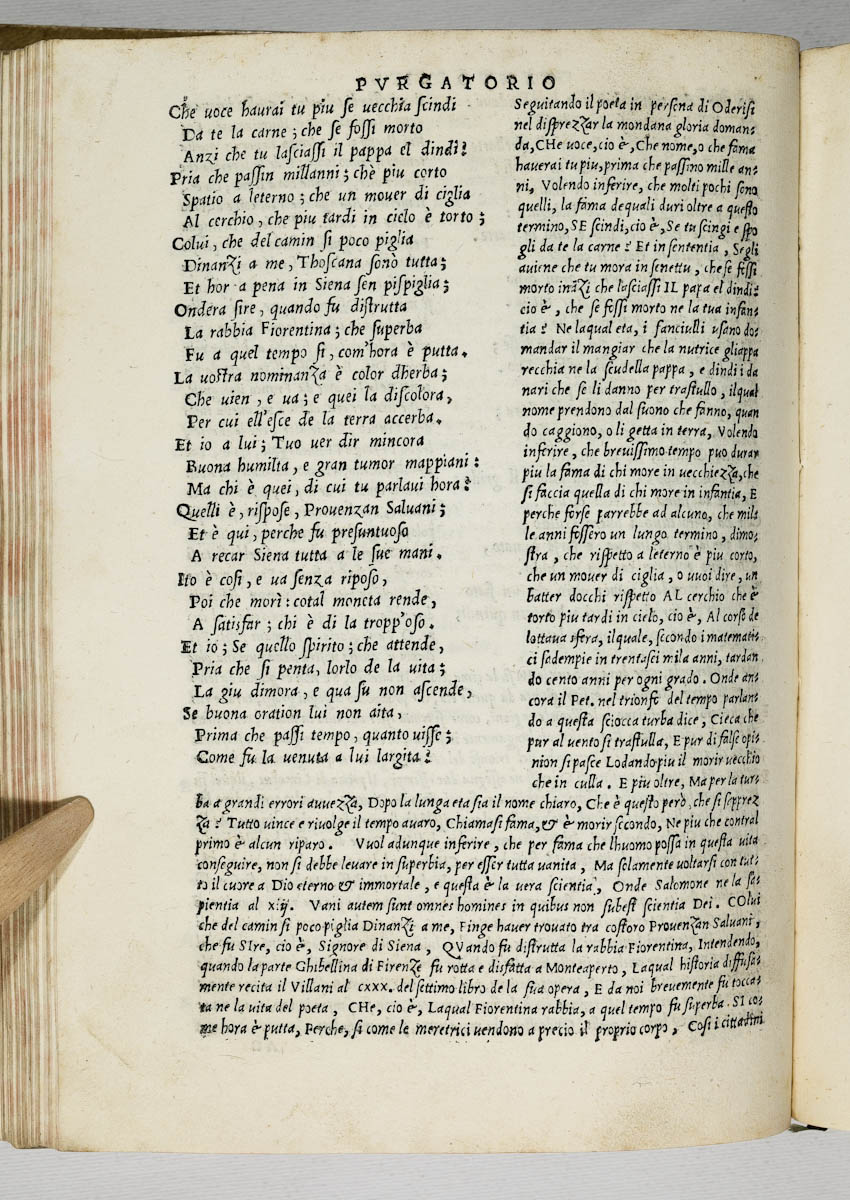 PVRGATORIO
Che uoce haurai tu piu se uecchia scindi
Da te la carne; che se fossi morto
Anzi che tu lasciassi il pappa el dindi?
Pria che passin mill'anni; chè piu corto
Spatio a leterno; che un mouer di ciglia
Al cerchio, che piu tardi in cielo è torto;
Colui, che del camin si poco piglia
Dinanzi a me, Thoscana sonò tutta;
Et hor a pena in Siena sen pispiglia;
Ondera sire, quando fu distrutta
La rabbia Fiorentina; che superba
Fu a quel tempo si, com'hora è putta.
La uostra nominanza è color dherba;
Che uien, e ua; e quei la discolora,
Per cui ell'esce de la terra accerba.
Et io a lui; Tuo uer dir mincora
Buona humilta, e gran tumor mappiani:
Ma chi è quei, di cui tu parlaui hora?
Quelli è, rispose, Prouenzan Saluani;
Et è qui, perche fu presuntuoso
A recar Siena tutta a le sue mani.
Ito è cosi, e ua senza riposo,
Poi che morì: cotal moneta rende,
A satisfar; chi è di la tropp'oso.
Et io; Se quello spirito; che attende,
Pria che si penta, lorlo de la uita;
La giu dimora, e qua su non ascende,
Se buona oration lui non aita,
Prima che passi tempo, quanto uisse;
Come fu la uenuta a lui largita?
Seguitando il poeta in persona di Oderisi
nel disprezzar la mondana gloria doman=
da, CHe uoce, cio è, Che nome, o che fama
hauerai tu piu, prima che passino mille an=
ni, Volendo inferire, che molti pochi sono
quelli, la fama de quali duri oltre a questo
termino, SE scindi, cio è, Se tu scingi e spo
gli da te la carne? Et in sententia, Se gli
auiene che tu mora in senettu, che se fossi
morto ināzi che lasciassi IL papa el dindi?
cio è, che se fossi morto ne la tua infan=
tia? Ne laqual eta, i fanciulli usano do=
mandar il mangiar che la nutrice gliappa
recchia ne la scudella pappa, e dindi i da
nari che se li danno per trastullo, ilqual
nome prendono dal suono che fanno, quan
do caggiono, o li getta in terra, Volendo
inferire, che breuissimo tempo puo durar
piu la fama di chi more in uecchiezza, che
si faccia quella di chi more in infantia, E
perche forse parrebbe ad alcuno, che mil=
le anni fossero un lungo termino, dimo=
stra, che rispetto a leterno è piu corto,
che un mouer di ciglia, o uuoi dire, un
batter docchi rispetto AL cerchio che è
torto piu tardi in cielo, cio è, Al corso de
lottaua sfera, ilquale, secondo i matematis
ci sadempie in trentasei mila anni, tardan
do cento anni per ogni grado. Onde an=
cora il Pet. nel trionfo del tempo parlan=
do a questa sciocca turba dice, Cieca che
pur al uento si trastulla, E pur di false opi=
nion si pasce Lodando piu il morir uecchio
che in culla. E piu oltre, Ma per la tur=
ba a grandi errori auuezza, Dopo la lunga eta sia il nome chiaro, Che è questo però, che si s'apprez
za? Tutto uince e riuolge il tempo auaro, Chiamasi fama, & è morir secondo, Ne piu che contral
primo è alcun riparo. Vuol adunque inferire, che per fama che lhuomo possa in questa uita
conseguire, non si debbe leuare in superbia, per esser tutta uanita, Ma solamente uoltarsi con tut=
to il cuore a Dio eterno & immortale, e questa è la uera scientia, Onde Salomone ne la sa=
pientia al xiij. Vani autem sunt omnes homines in quibus non subest scientia Dei. COlui
che del camin si poco piglia Dinanzi a me, Finge hauer trouato tra costoro Prouenzan Saluani,
che fu SIre, cio è, Signore di Siena, QVando fu distrutta la rabbia Fiorentina, Intendendo,
quando la parte Ghibellina di Firenze fu rotta e disfatta a Monteaperto, Laqual historia diffusa=
mente recita il Villani al cxxx. del settimo libro de la sua opera, E da noi breuemente fu tocca=
ta ne la uita del poeta, CHe, cio è, Laqual Fiorentina rabbia, a quel tempo fu superba SI co=
me hora è putta, Perche, si come le meretrici uendono a precio il proprio corpo, Cosi i cittadini